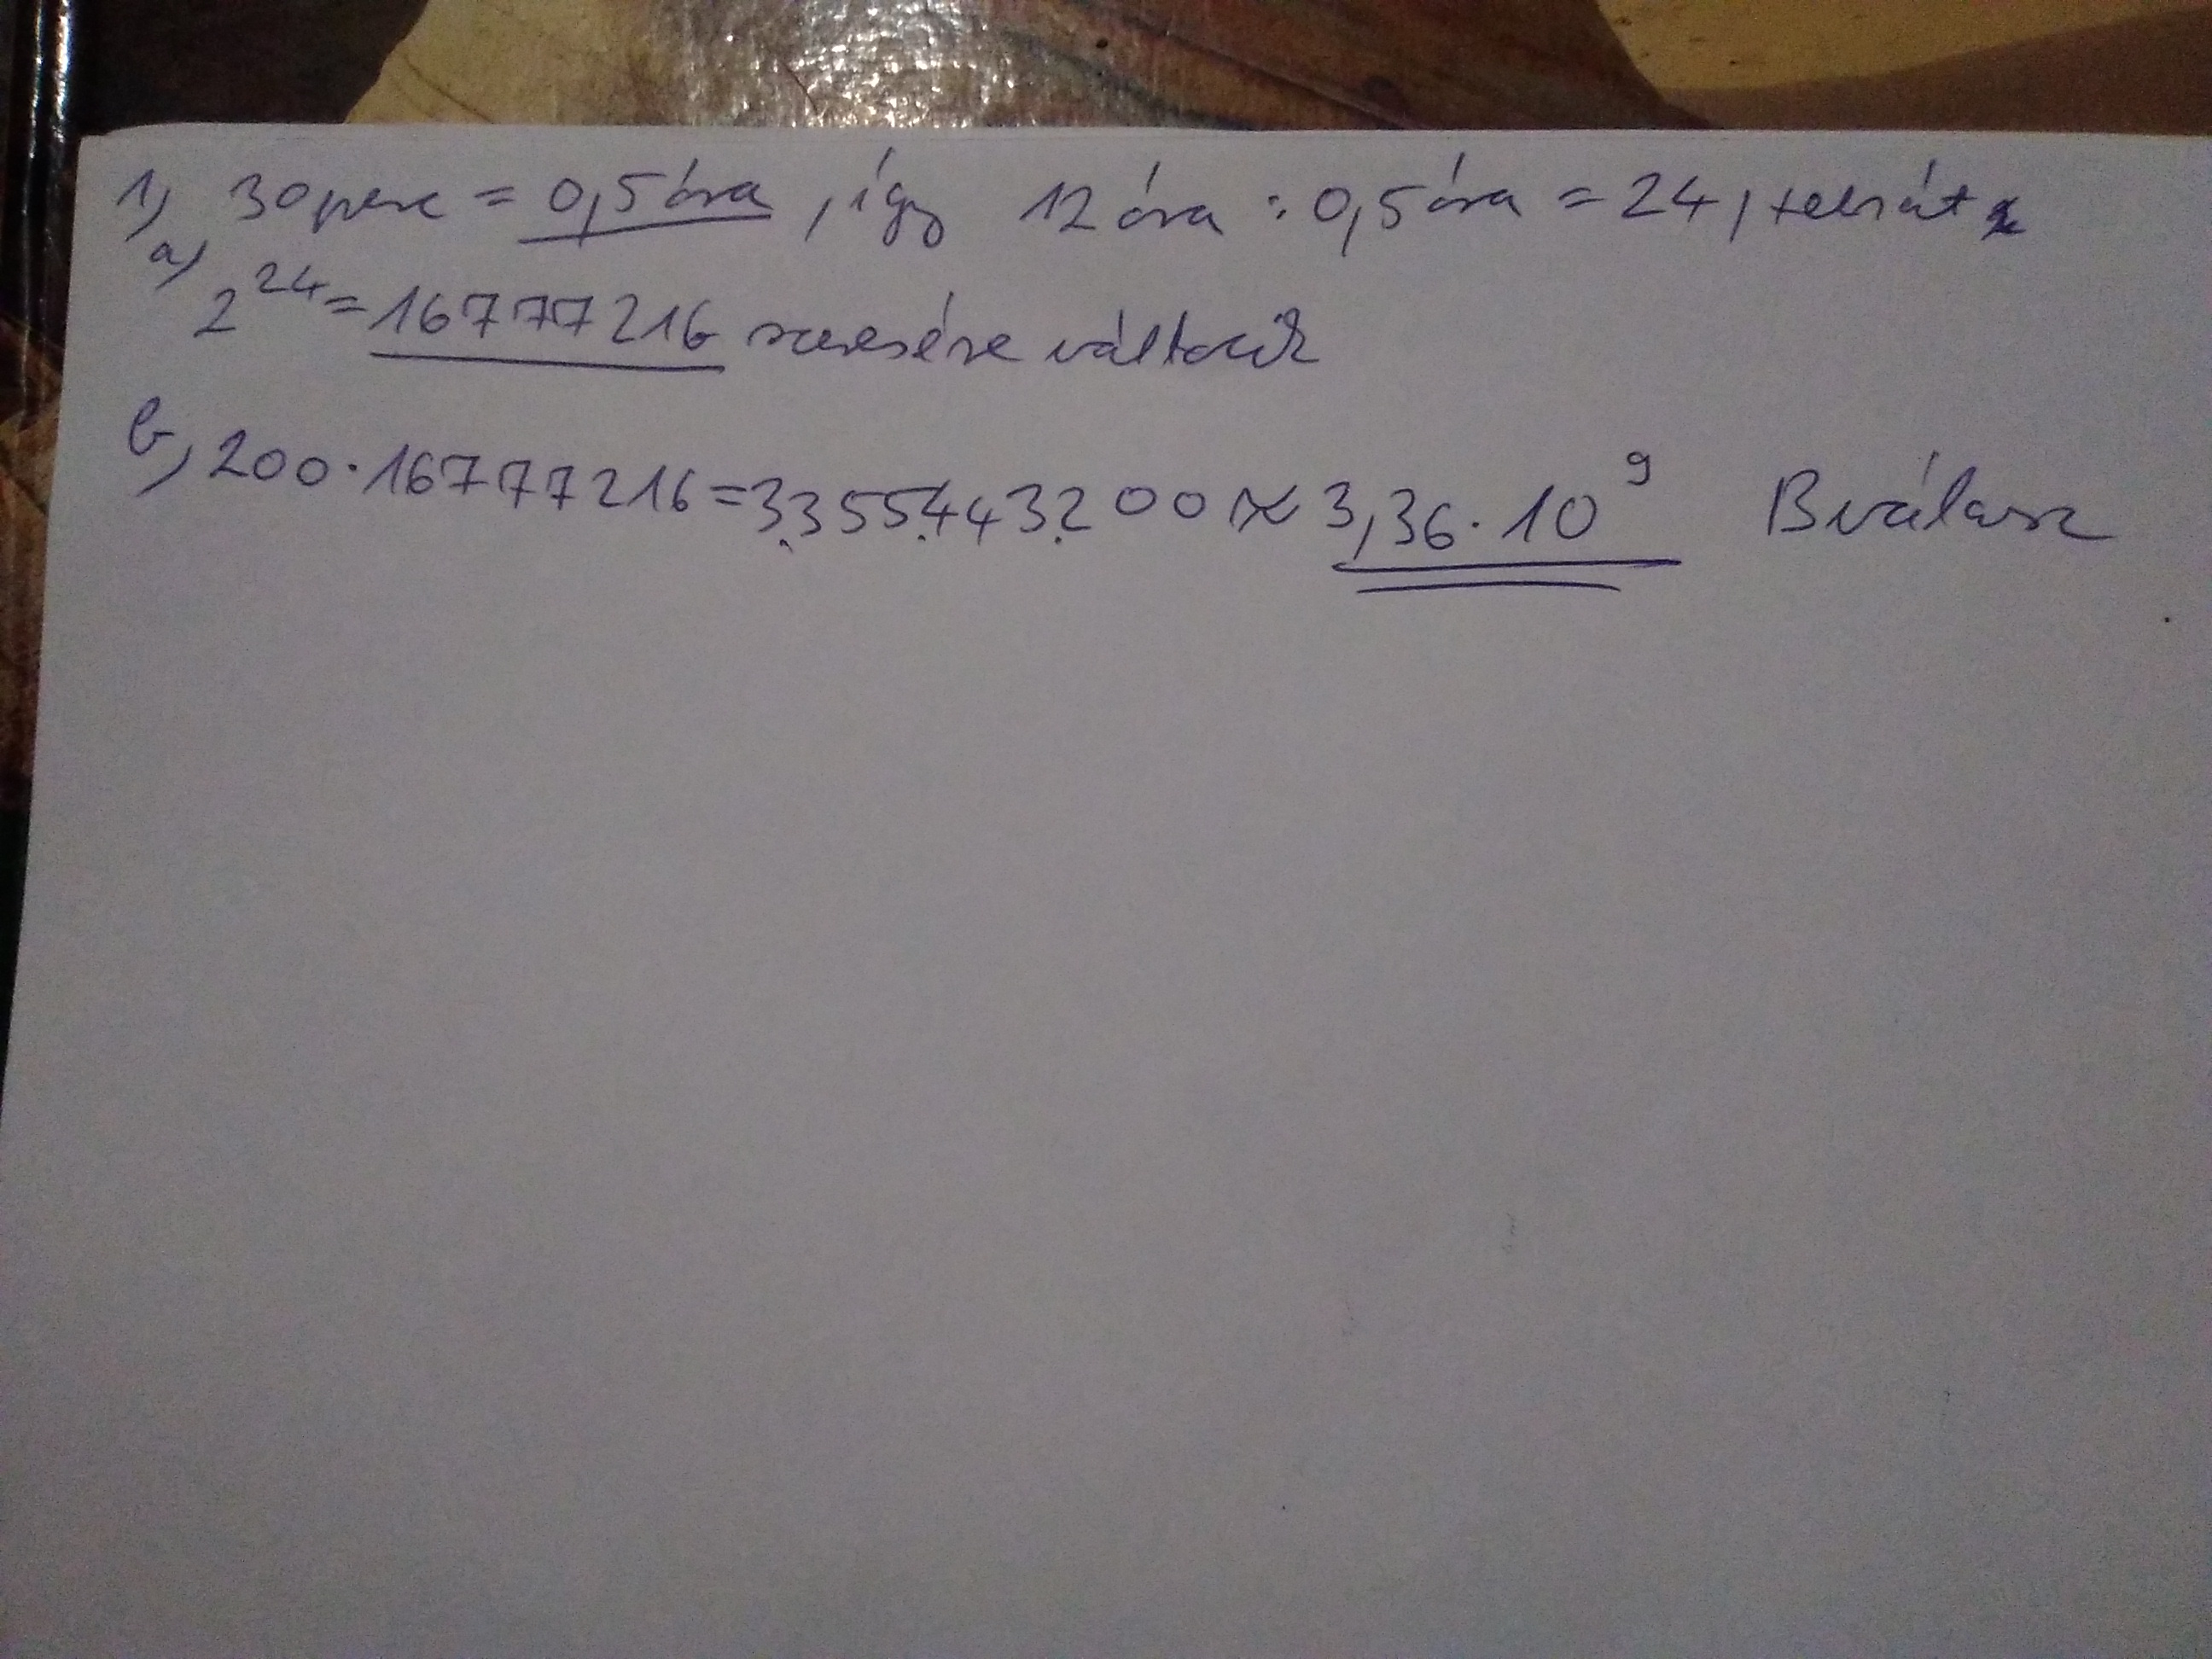 1, 30 perc = 0,5 óra, így 12 óra : 0,5 óra = 24, tehát
a) 2²⁴ = 16777216 szeresére változik
b, 200 · 16777216 = 3.355.443.200 ≈ 3,36 · 10⁹ B válasz